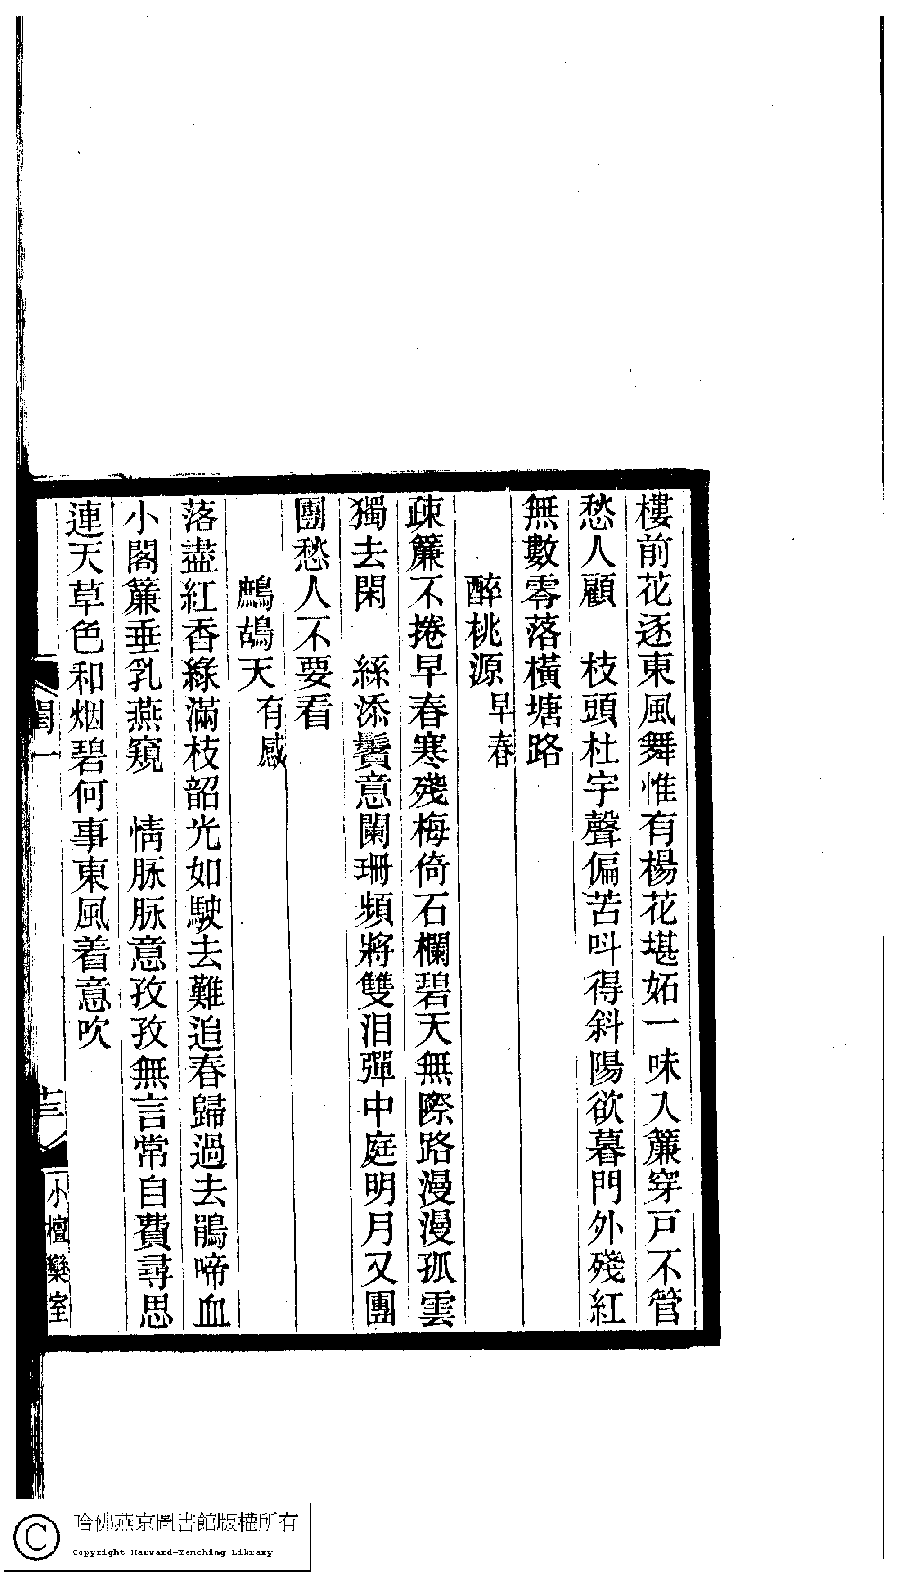 樓前花逐東風舞惟有楊花堪妬一味入簾穿戸不管
愁人顧　枝頭杜宇聲偏苦呌得斜陽欲暮門外殘紅
無數零落橫塘路
醉桃源早春
疎簾不捲早春寒殘梅倚石欄碧天無際路漫漫孤雲
獨去閑　絲添鬢意闌珊頻將雙泪彈中庭明月又團
團愁人不要看
鷓鴣天有感
落盡紅香綠滿枝韶光如駛去難追春歸過去鵑啼血
小閣簾垂乳燕窺　情脉脉意孜孜無言常自費尋思
連天草色和烟碧何事東風着意吹
閏一
十三
小檀欒室
哈佛燕京圖書館版權所有
Copyright Harvard-Yenching Library